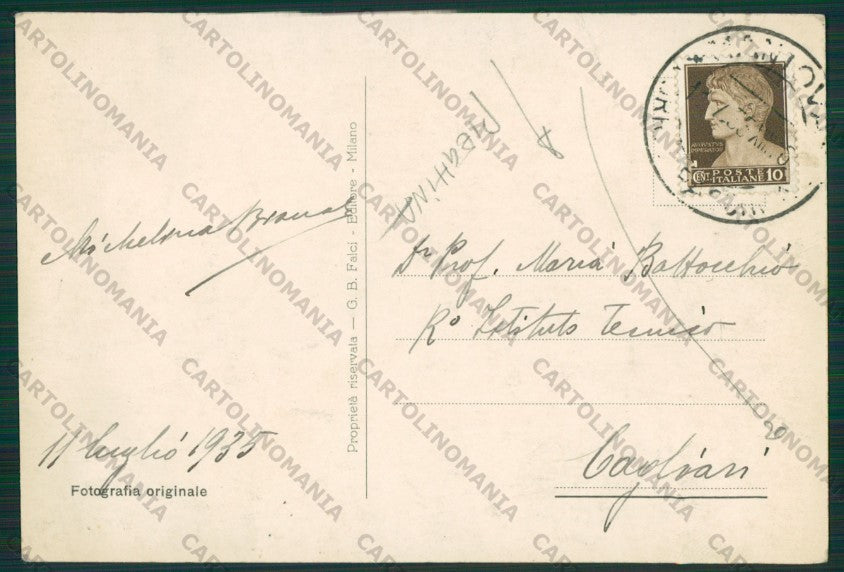 Michelina
11 luglio 1935
Fotografia originale
Proprietà riservata — G. B. Falci - Editore - Milano
AVGVSTVS
IMPERATOR
CENT. POSTE ITALIANE 10
Dr Prof. Maria Battocchio
Ro Istituto Tecnico
Cagliari
CARTOLINOMANIA